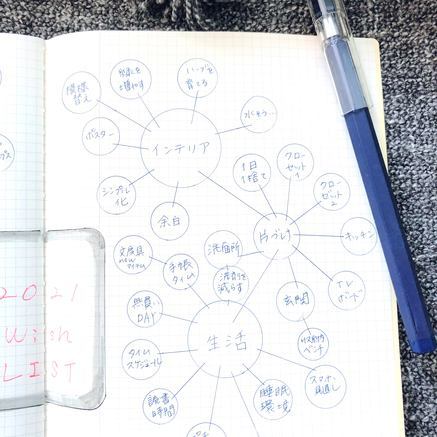 模様
替え
緑を
増やす
ハーブを
育てる
水そう…
ポスター
インテリア
シンプル
化
余白
1日
1捨て
クロー
ゼット
1
クロー
ゼット
2
キッチン
片づけ
洗面所
洗剤を
減らす
TV
ボード
玄関
文房具
newアイテム
手帳
タイム
無買い
DAY
生活
タイム
スケジュール
読書
時間
睡眠
環境
スマホ
見直し
2021
Wish
LIST